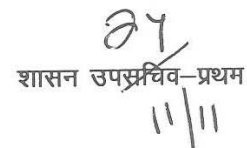 शासन उपसचिव–प्रथम
11/11